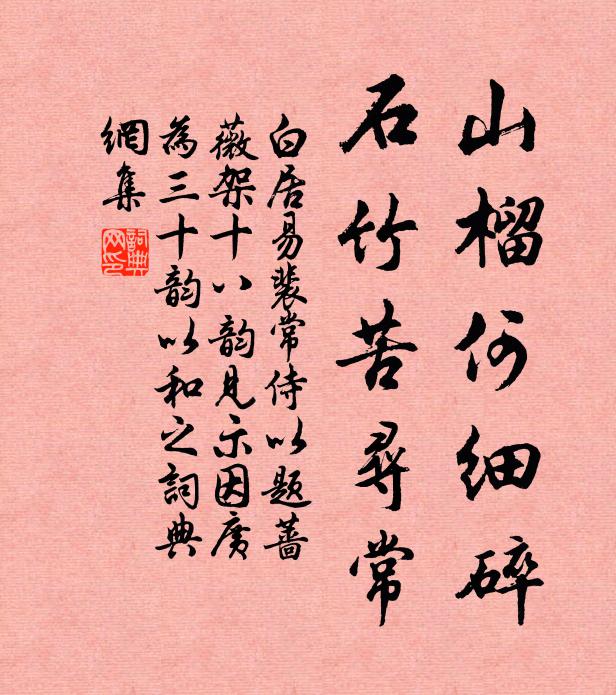 山榴何细碎
石竹苦尋常
白居易裴常侍以题蔷
薇架十八韵見示因廣
為三十韵以和之詞典
網集
詞典网印